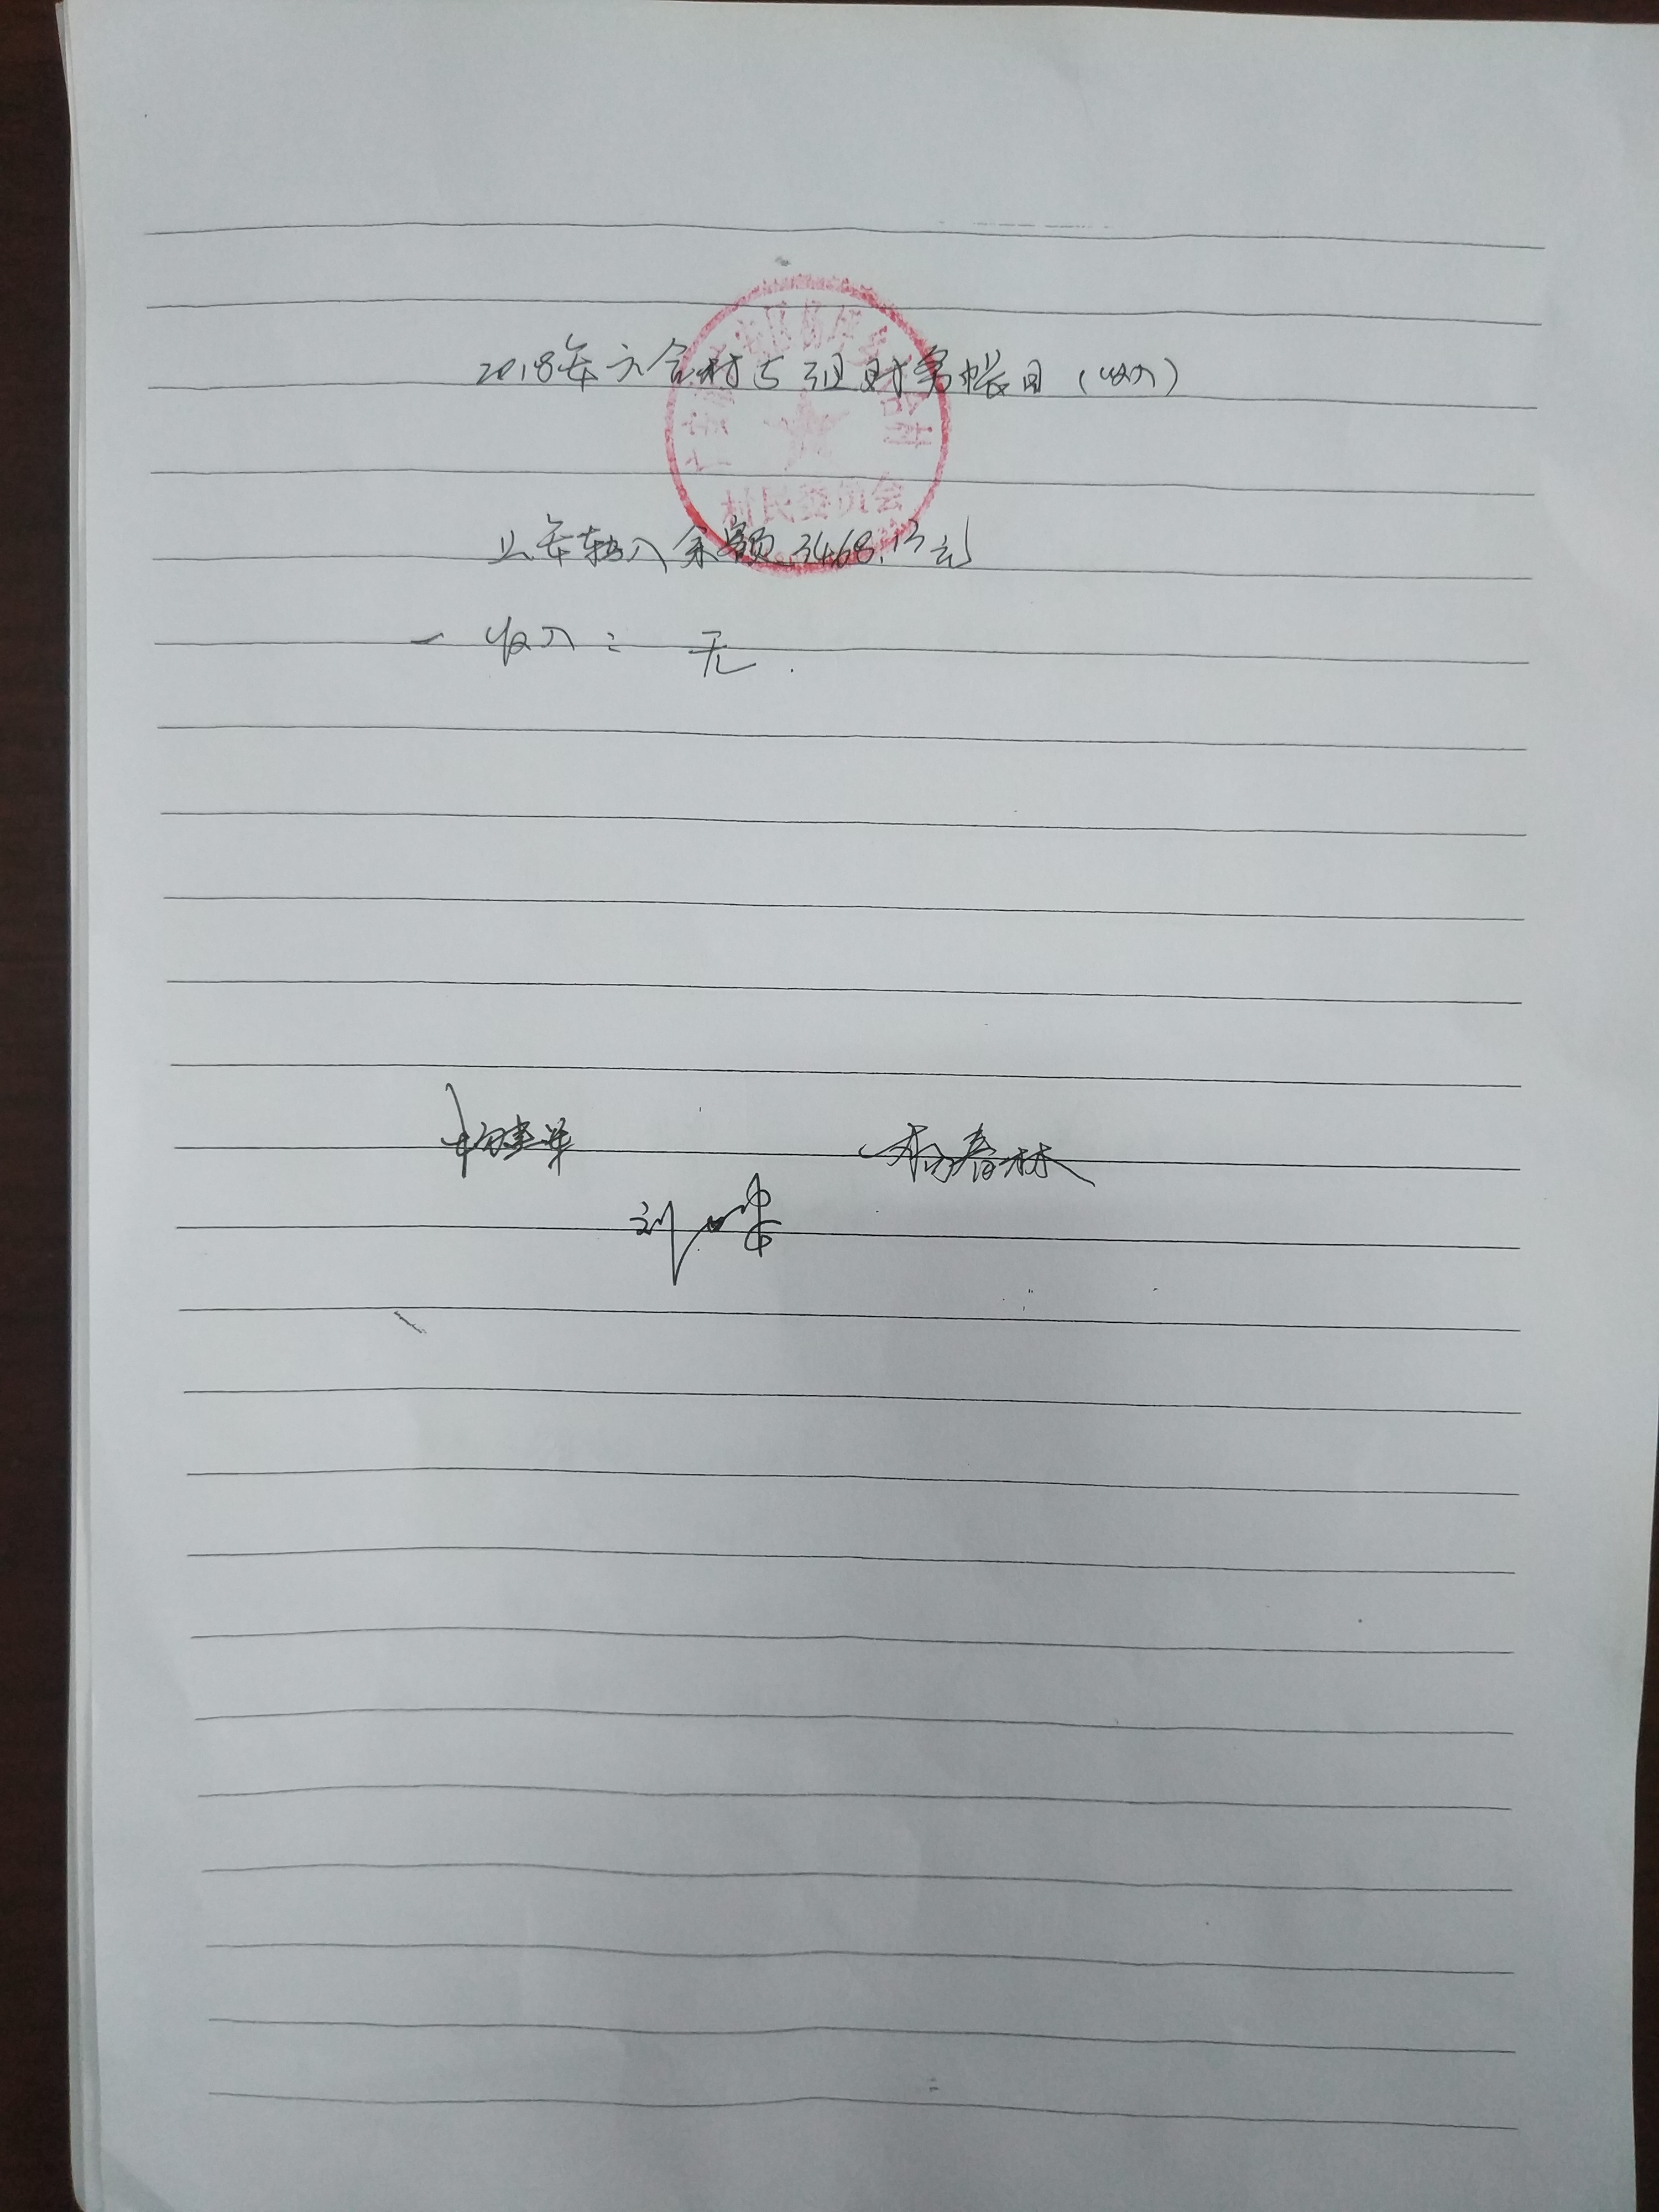 2018年六合村5组财务帐目（收入）
村民委员会
上年转入余额3468.13元
一 收入： 无.
杨春林
刘峰